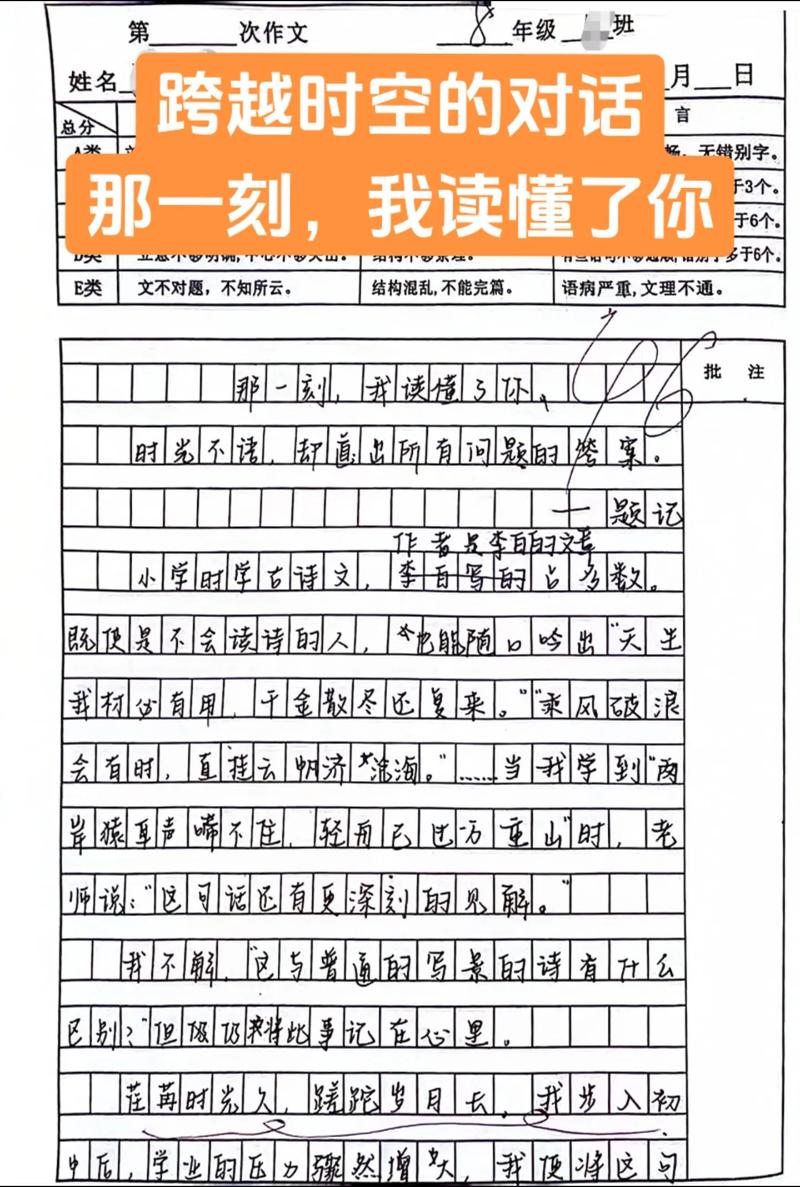 第 次作文 8 年级 班
姓名 月 日
跨越时空的对话
那一刻，我读懂了你
总分 言
A类 畅，无错别字。
于3个。
于6个。
D类 立意不够明确，中心不够突出。 结构不够条理。 有些语句不够通顺，错别字多于6个。
E类 文不对题，不知所云。 结构混乱，不能完篇。 语病严重，文理不通。
批 注
96
那一刻，我读懂了你、
时光不语，却道出所有问题的答案。
一题记
作者是李白的文章
小学时学古诗文，李白写的占多数。
既使是不会读诗的人，也能随口吟出“天生
我材必有用，千金散冬还复来。”“乘风破浪
会有时，直挂云帆济沧海。”……当我学到“两
岸猿声啼不住，轻舟已过万重山”时，老
师说：“这句话还有更深刻的见解。”
我不解，“这与普通的写景的诗有什么
区别？”但我仍将此事记在心里。
荏苒时光久，蹉跎岁月长，我步入初
中后，学业的压力骤然增大，我便将这句